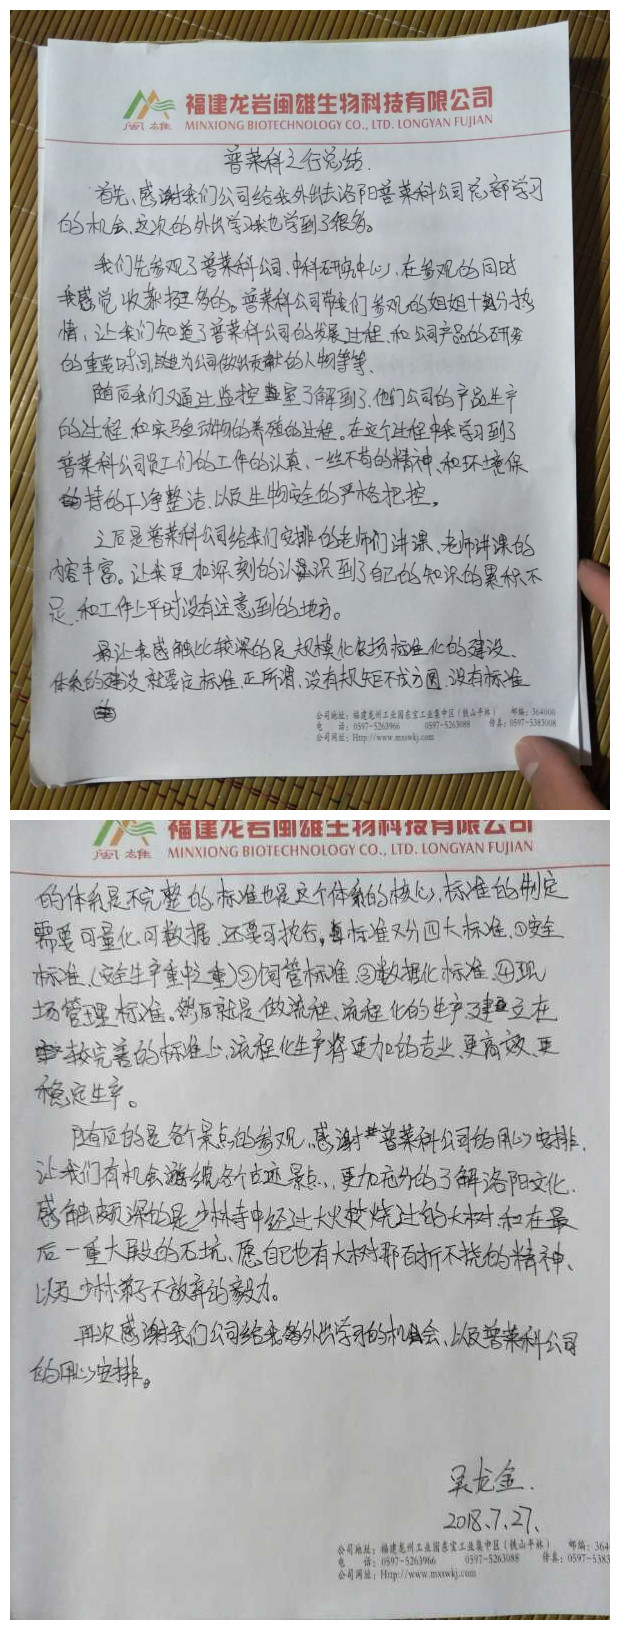 福建龙岩闽雄生物科技有限公司
闽雄
MINXIONG BIOTECHNOLOGY CO., LTD. LONGYAN FUJIAN
普莱科之行总结.
首先、感谢我们公司给我外出去洛阳普莱科公司总部学习
的机会、这次的外出学习我也学到了很多。
我们先参观了普莱科公司、中科研究中心、在参观的同时
我感觉收获挺多的。普莱科公司带我们参观的姐姐十分热
情、让我们知道了普莱科公司的发展过程、和公司产品的研发
的重要时间、与为公司做出贡献的人物等等、
随后我们又通过监控室了解到了、他们公司的产品生产
的过程、和实验动物的养殖的过程。在这个过程中我学习到了
普莱科公司员工们的工作的认真、一丝不苟的精神、和环境保
持的干净整洁、以及生物安全的严格把控。
之后是普莱科公司给我们安排的老师们讲课、老师讲课的
内容丰富。让我更加深刻的认识到了自己的知识的累积不
足、和工作上平时没有注意到的地方。
最让我感触比较深的是、规模化农场标准化的建设、
体系的建设就要定标准、正所谓、没有规矩不成方圆、没有标准
公司地址：福建龙州工业园东宝工业集中区（铁山平林） 邮编：364000
电 话：0597-5263966 0597-5263088 传真：0597-5383008
公司网址：Http://www.mxswkj.com
福建龙岩闽雄生物科技有限公司
闽雄
MINXIONG BIOTECHNOLOGY CO., LTD. LONGYAN FUJIAN
的体系是不完整的、标准也是这个体系的核心、标准的制定
需要可量化、可数据、还要可执行。标准又分四大标准、①安全
标准、(安全生产重中之重)②饲管标准、③数据化标准、④现
场管理标准。然后就是做流程、流程化的生产建立在
较完善的标准上、流程化生产将更加的专业、更高效、更
稳定生产。
随后的是各个景点的参观、感谢普莱科公司的用心安排、
让我们有机会游览各个古迹景点、更加充分的了解洛阳文化、
感触颇深的是少林寺中经过大火焚烧过的大树、和在最
后一重大殿的石坑、愿自己也有大树那百折不挠的精神、
以及少林弟子不放弃的毅力。
再次感谢我们公司给我外出学习的机会、以及普莱科公司
的用心安排。
吴龙金.
2018.7.27.
公司地址：福建龙州工业园东宝工业集中区（铁山平林） 邮编：364
电 话：0597-5263966 0597-5263088 传真：0597-5383
公司网址：Http://www.mxswkj.com